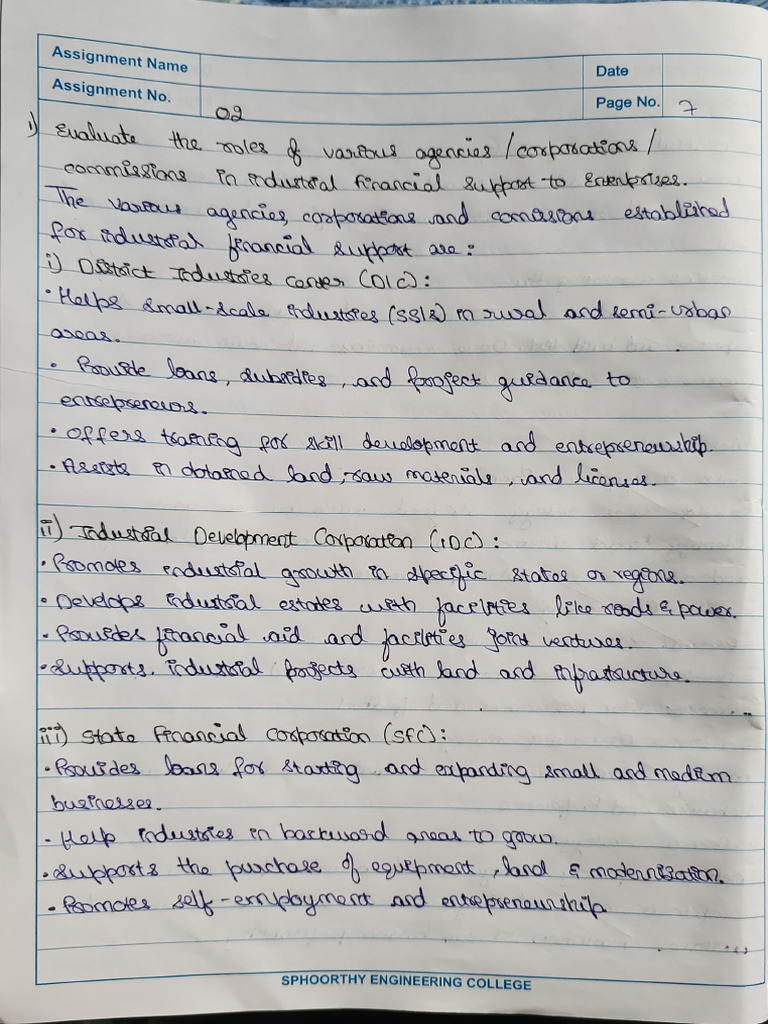 Assignment Name
Date
Assignment No.
02
Page No. 7
1) Evaluate the roles of various agencies/corporations/
commissions in industrial financial support to Enterprises.
The various agencies, corporations and comissions established
for industrial financial support are:
i) District Industries center (DIC):
• Helps small-scale industries (SSIs) in rural and semi-urban
areas.
• Provide loans, subsidies, and project guidance to
entrepreneurs.
• Offers training for skill development and entrepreneurship.
• Assists in obtained land, raw materials, and licenses.
ii) Industrial Development Corporation (IDC):
• Promotes industrial growth in specific states or regions.
• Develops industrial estates with facilities like roads & power.
• Provides financial aid and facilities joint ventures.
• Supports industrial projects with land and infrastructure.
iii) State Financial Corporation (SFC):
• Provides loans for starting and expanding small and medim
businesses.
• Help industries in backward areas to grow.
• Supports the purchase of equipment, land & modernization.
• Promotes self-employment and entrepreneurship
SPHOORTHY ENGINEERING COLLEGE